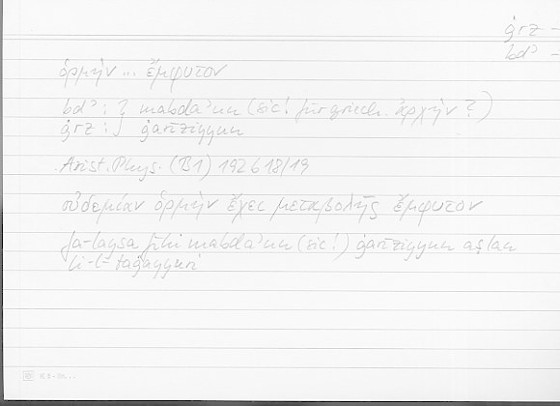 ġrz -
bdʾ -
ὁρμὴν ... ἔμφυτον
bdʾ : } mabdaʾun (sic! für griech. ἀρχήν ?)
ġrz : } ġarīziyyun
Arist. Phys. (B1) 192 b 18/19
οὐδεμίαν ὁρμὴν ἔχει μεταβολῆς ἔμφυτον
fa-laysa fīhi mabdaʾun (sic!) ġarīziyyun aṣlan
li-l-taġayyuri